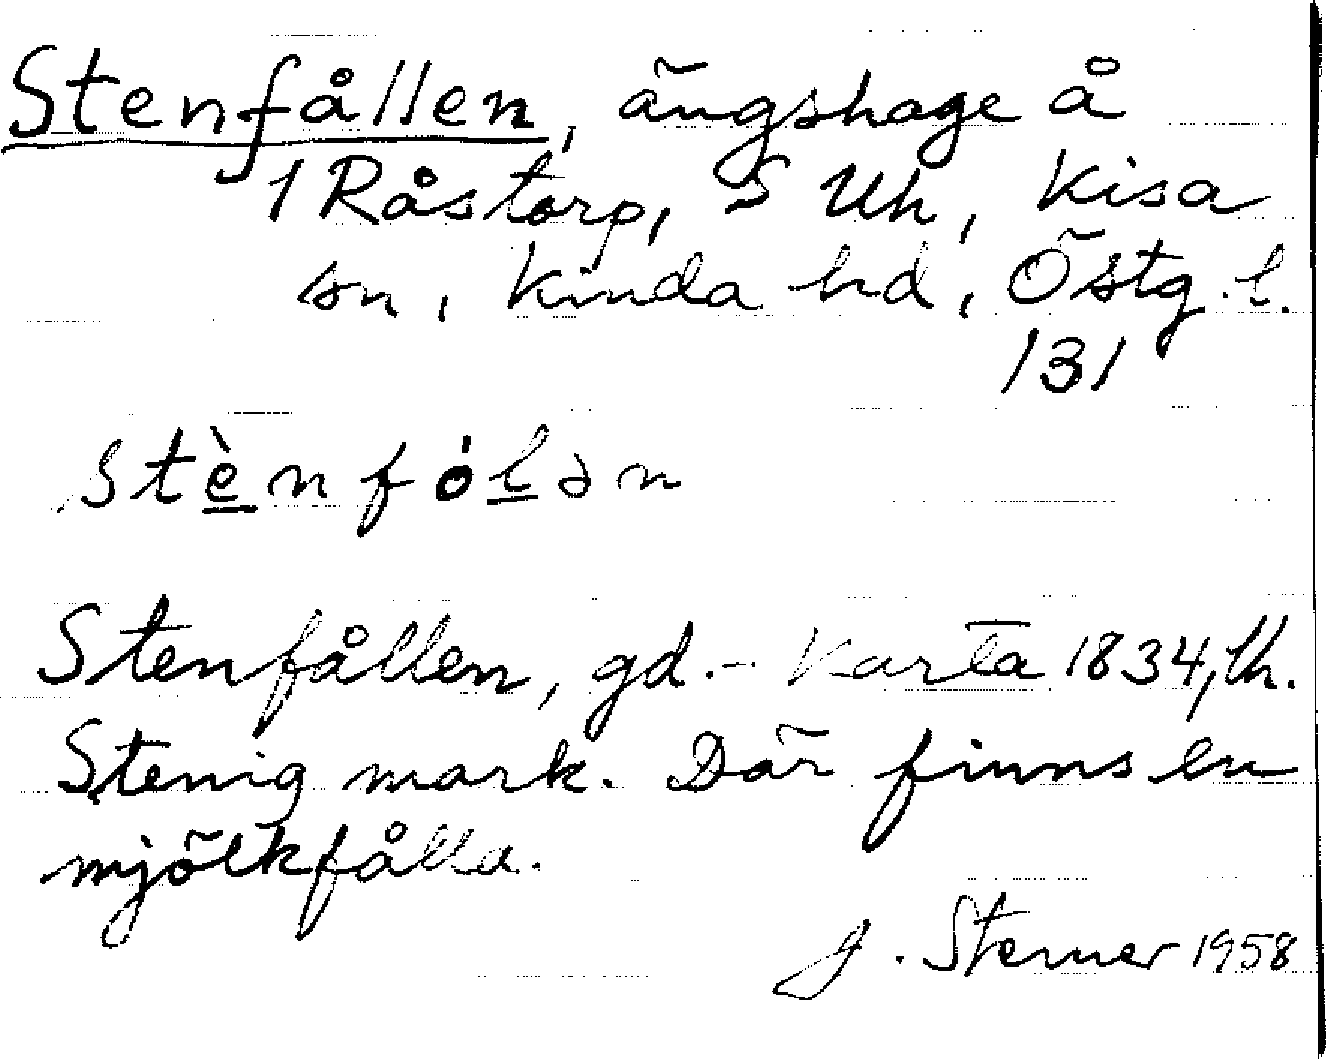 Stenfållen, ängshage å
1 Råstorp, S Uh, Kisa
sn, Kinda hd, Östg. l.
131
stènfólən
Stenfållen, gd. - Karta 1834, Uh.
Stenig mark. Där finns en
mjölkfålla.
J. Sterner 1958